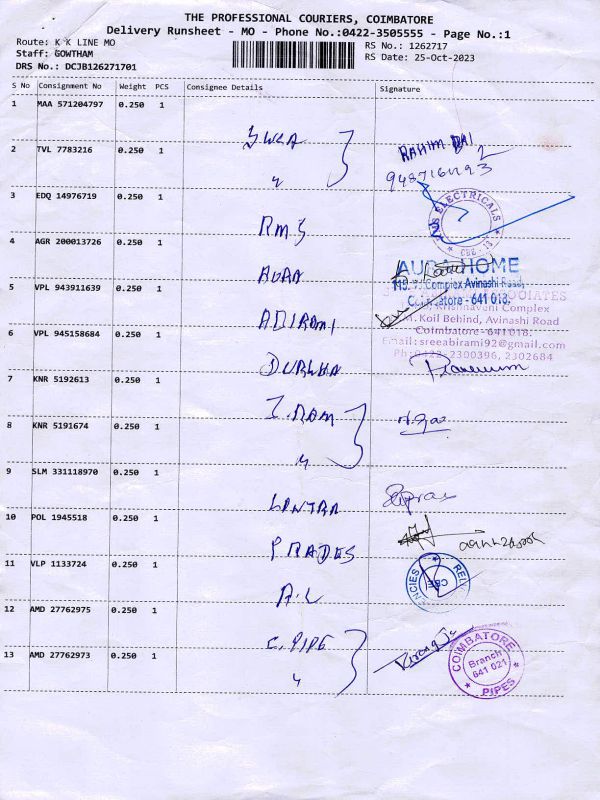 THE PROFESSIONAL COURIERS, COIMBATORE
Delivery Runsheet - MO - Phone No.:0422-3505555 - Page No.:1
Route: K K LINE MO
Staff: GOWTHAM
DRS No.: DCJB126271701
RS No.: 1262717
RS Date: 25-Oct-2023
S No Consignment No Weight PCS Consignee Details Signature
1 MAA 571204797 0.250 1
2 TVL 7783216 0.250 1
RAHIM
3 EDQ 14976719 0.250 1 RMS
ELECTRICALS
4 AGR 200013726 0.250 1 AURA
AURA HOME
Complex Avinashi Road,
Coimbatore - 641 018.
5 VPL 943911639 0.250 1 ABIRAMI
Complex
Koil Behind, Avinashi Road
Coimbatore - 641018.
Email: sreeabirami92@gmail.com
Ph: 0422-2300396, 2302684
6 VPL 945158684 0.250 1 DURGHA
7 KNR 5192613 0.250 1 I. RAM
8 KNR 5191674 0.250 1 "
9 SLM 331118970 0.250 1
10 POL 1945518 0.250 1
11 VLP 1133724 0.250 1 A.L
CBE
12 AMD 27762975 0.250 1 C. PIPE
13 AMD 27762973 0.250 1 "
COIMBATORE
Branch
641 021
PIPES